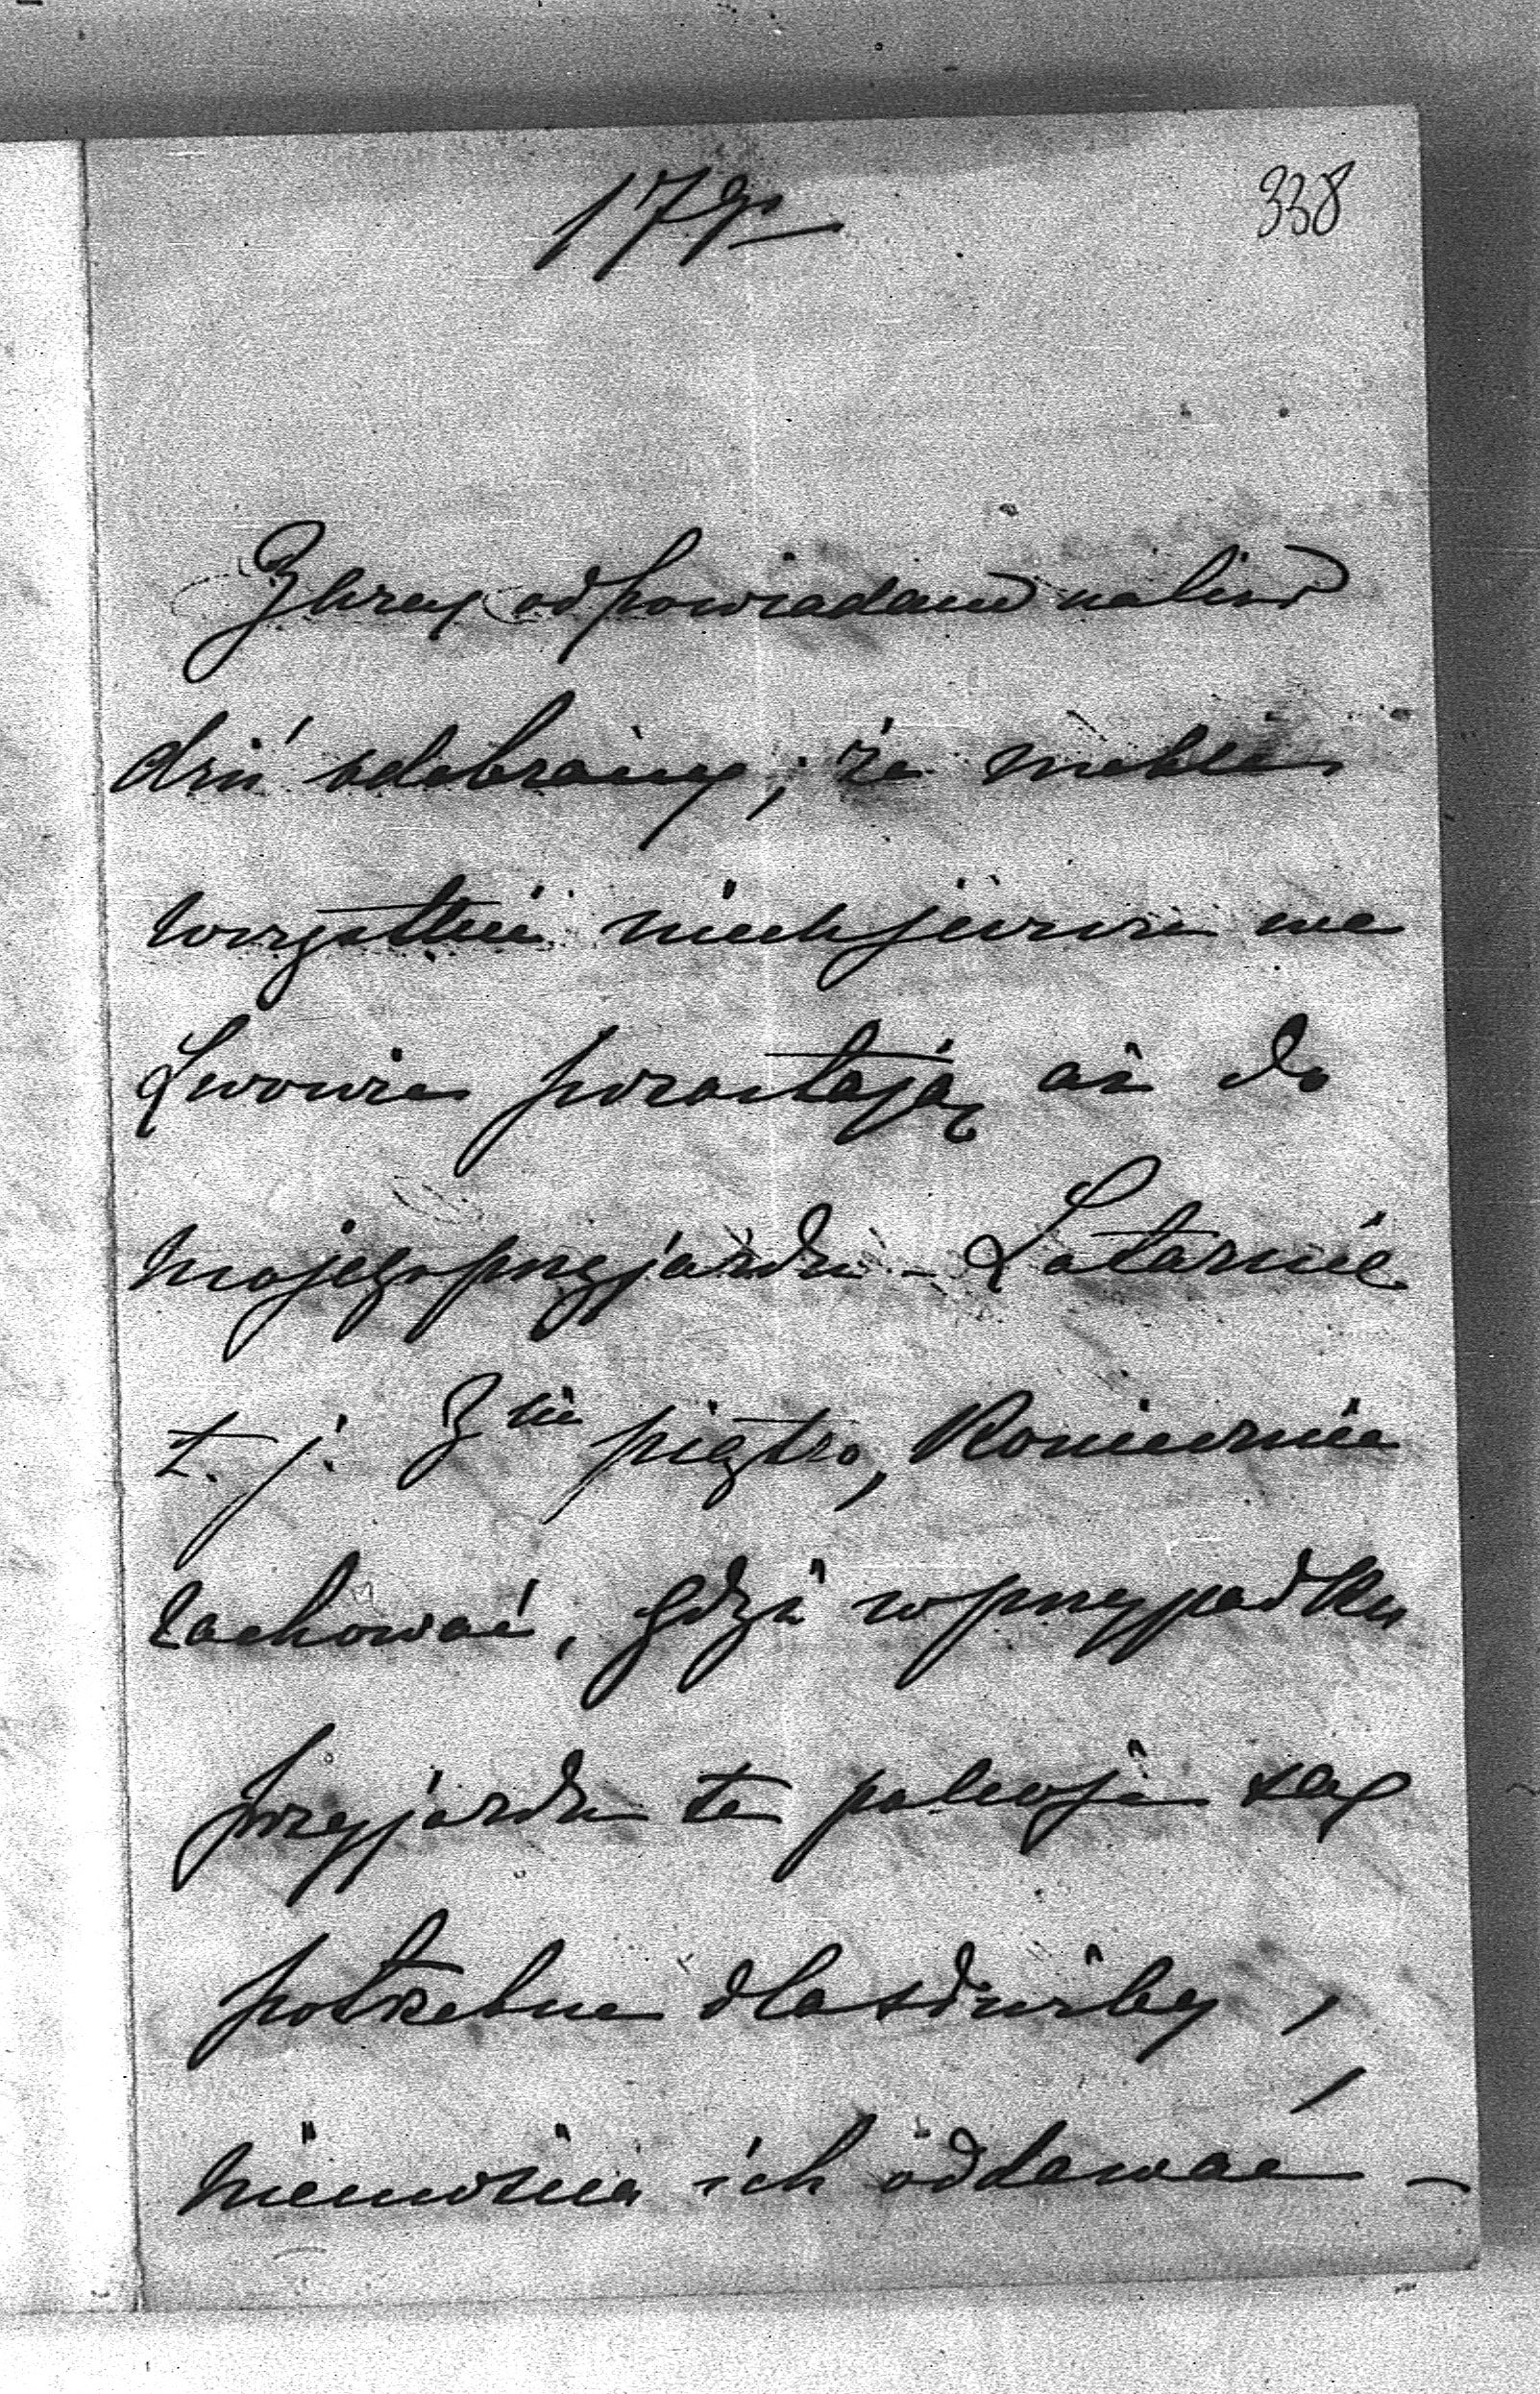 17go
338
Zaraz odpowiadam na list
dziś odebrany, że meble
wszystkie niech jeszcze we
Lwowie pozostają aż do
mojego przyjazdu - Latarnie
t. j. 3cie piętro, koniecznie
zachować, gdyż w przypadku
przyjazdu te pokoje są
potrzebne dla służby,
niemożna ich oddawać -